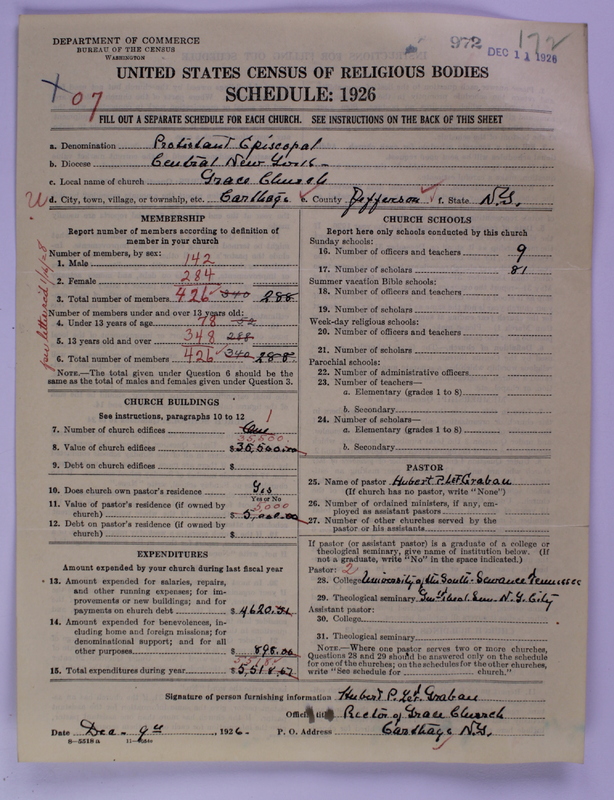 DEPARTMENT OF COMMERCE
BUREAU OF THE CENSUS
WASHINGTON
972
172
DEC 11 1926
UNITED STATES CENSUS OF RELIGIOUS BODIES
SCHEDULE: 1926
X 07
FILL OUT A SEPARATE SCHEDULE FOR EACH CHURCH. SEE INSTRUCTIONS ON THE BACK OF THIS SHEET
a. Denomination Protestant Episcopal
b. Diocese Central New York
c. Local name of church Grace Church
d. City, town, village, or township, etc. Carthage e. County Jefferson f. State N.Y.
MEMBERSHIP
Report number of members according to definition of
member in your church
Number of members, by sex:
1. Male 142
2. Female 284
3. Total number of members 426 340 288
Number of members under and over 13 years old:
4. Under 13 years of age 78 52
5. 13 years old and over 348 288
6. Total number of members 426 340 288
NOTE.—The total given under Question 6 should be the
same as the total of males and females given under Question 3.
CHURCH BUILDINGS
See instructions, paragraphs 10 to 12
7. Number of church edifices One 1
35,500
8. Value of church edifices $35,500.00
9. Debt on church edifices $
10. Does church own pastor's residence Yes
Yes or No
11. Value of pastor's residence (if owned by
church) $5,000.00
5000
12. Debt on pastor's residence (if owned by
church) $
EXPENDITURES
Amount expended by your church during last fiscal year
13. Amount expended for salaries, repairs,
and other running expenses; for im-
provements or new buildings; and for
payments on church debt $4620.
14. Amount expended for benevolences, in-
cluding home and foreign missions; for
denominational support; and for all
other purposes $898.00
5518
15. Total expenditures during year $5,518.
CHURCH SCHOOLS
Report here only schools conducted by this church
Sunday schools:
16. Number of officers and teachers 9
17. Number of scholars 81
Summer vacation Bible schools:
18. Number of officers and teachers
19. Number of scholars
Week-day religious schools:
20. Number of officers and teachers
21. Number of scholars
Parochial schools:
22. Number of administrative officers
23. Number of teachers—
a. Elementary (grades 1 to 8)
b. Secondary
24. Number of scholars—
a. Elementary (grades 1 to 8)
b. Secondary
PASTOR
25. Name of pastor Hubert P. LeF. Grabau
(If church has no pastor, write "None")
26. Number of ordained ministers, if any, em-
ployed as assistant pastors
27. Number of other churches served by the
pastor or his assistants
If pastor (or assistant pastor) is a graduate of a college or
theological seminary, give name of institution below. (If
not a graduate, write "No" in the space indicated.)
Pastor: 2
28. College University of the South - Sewanee Tennessee
29. Theological seminary Gen'l Theol. Sem. N.Y. City
Assistant pastor:
30. College
31. Theological seminary
NOTE.—Where one pastor serves two or more churches,
Questions 28 and 29 should be answered only on the schedule
for one of the churches; on the schedules for the other churches,
write "See schedule for church."
Signature of person furnishing information Hubert P. LeF. Grabau
Official title Rector of Grace Church
Date Dec. 9th, 1926. P. O. Address Carthage N.Y.
8—5518 a